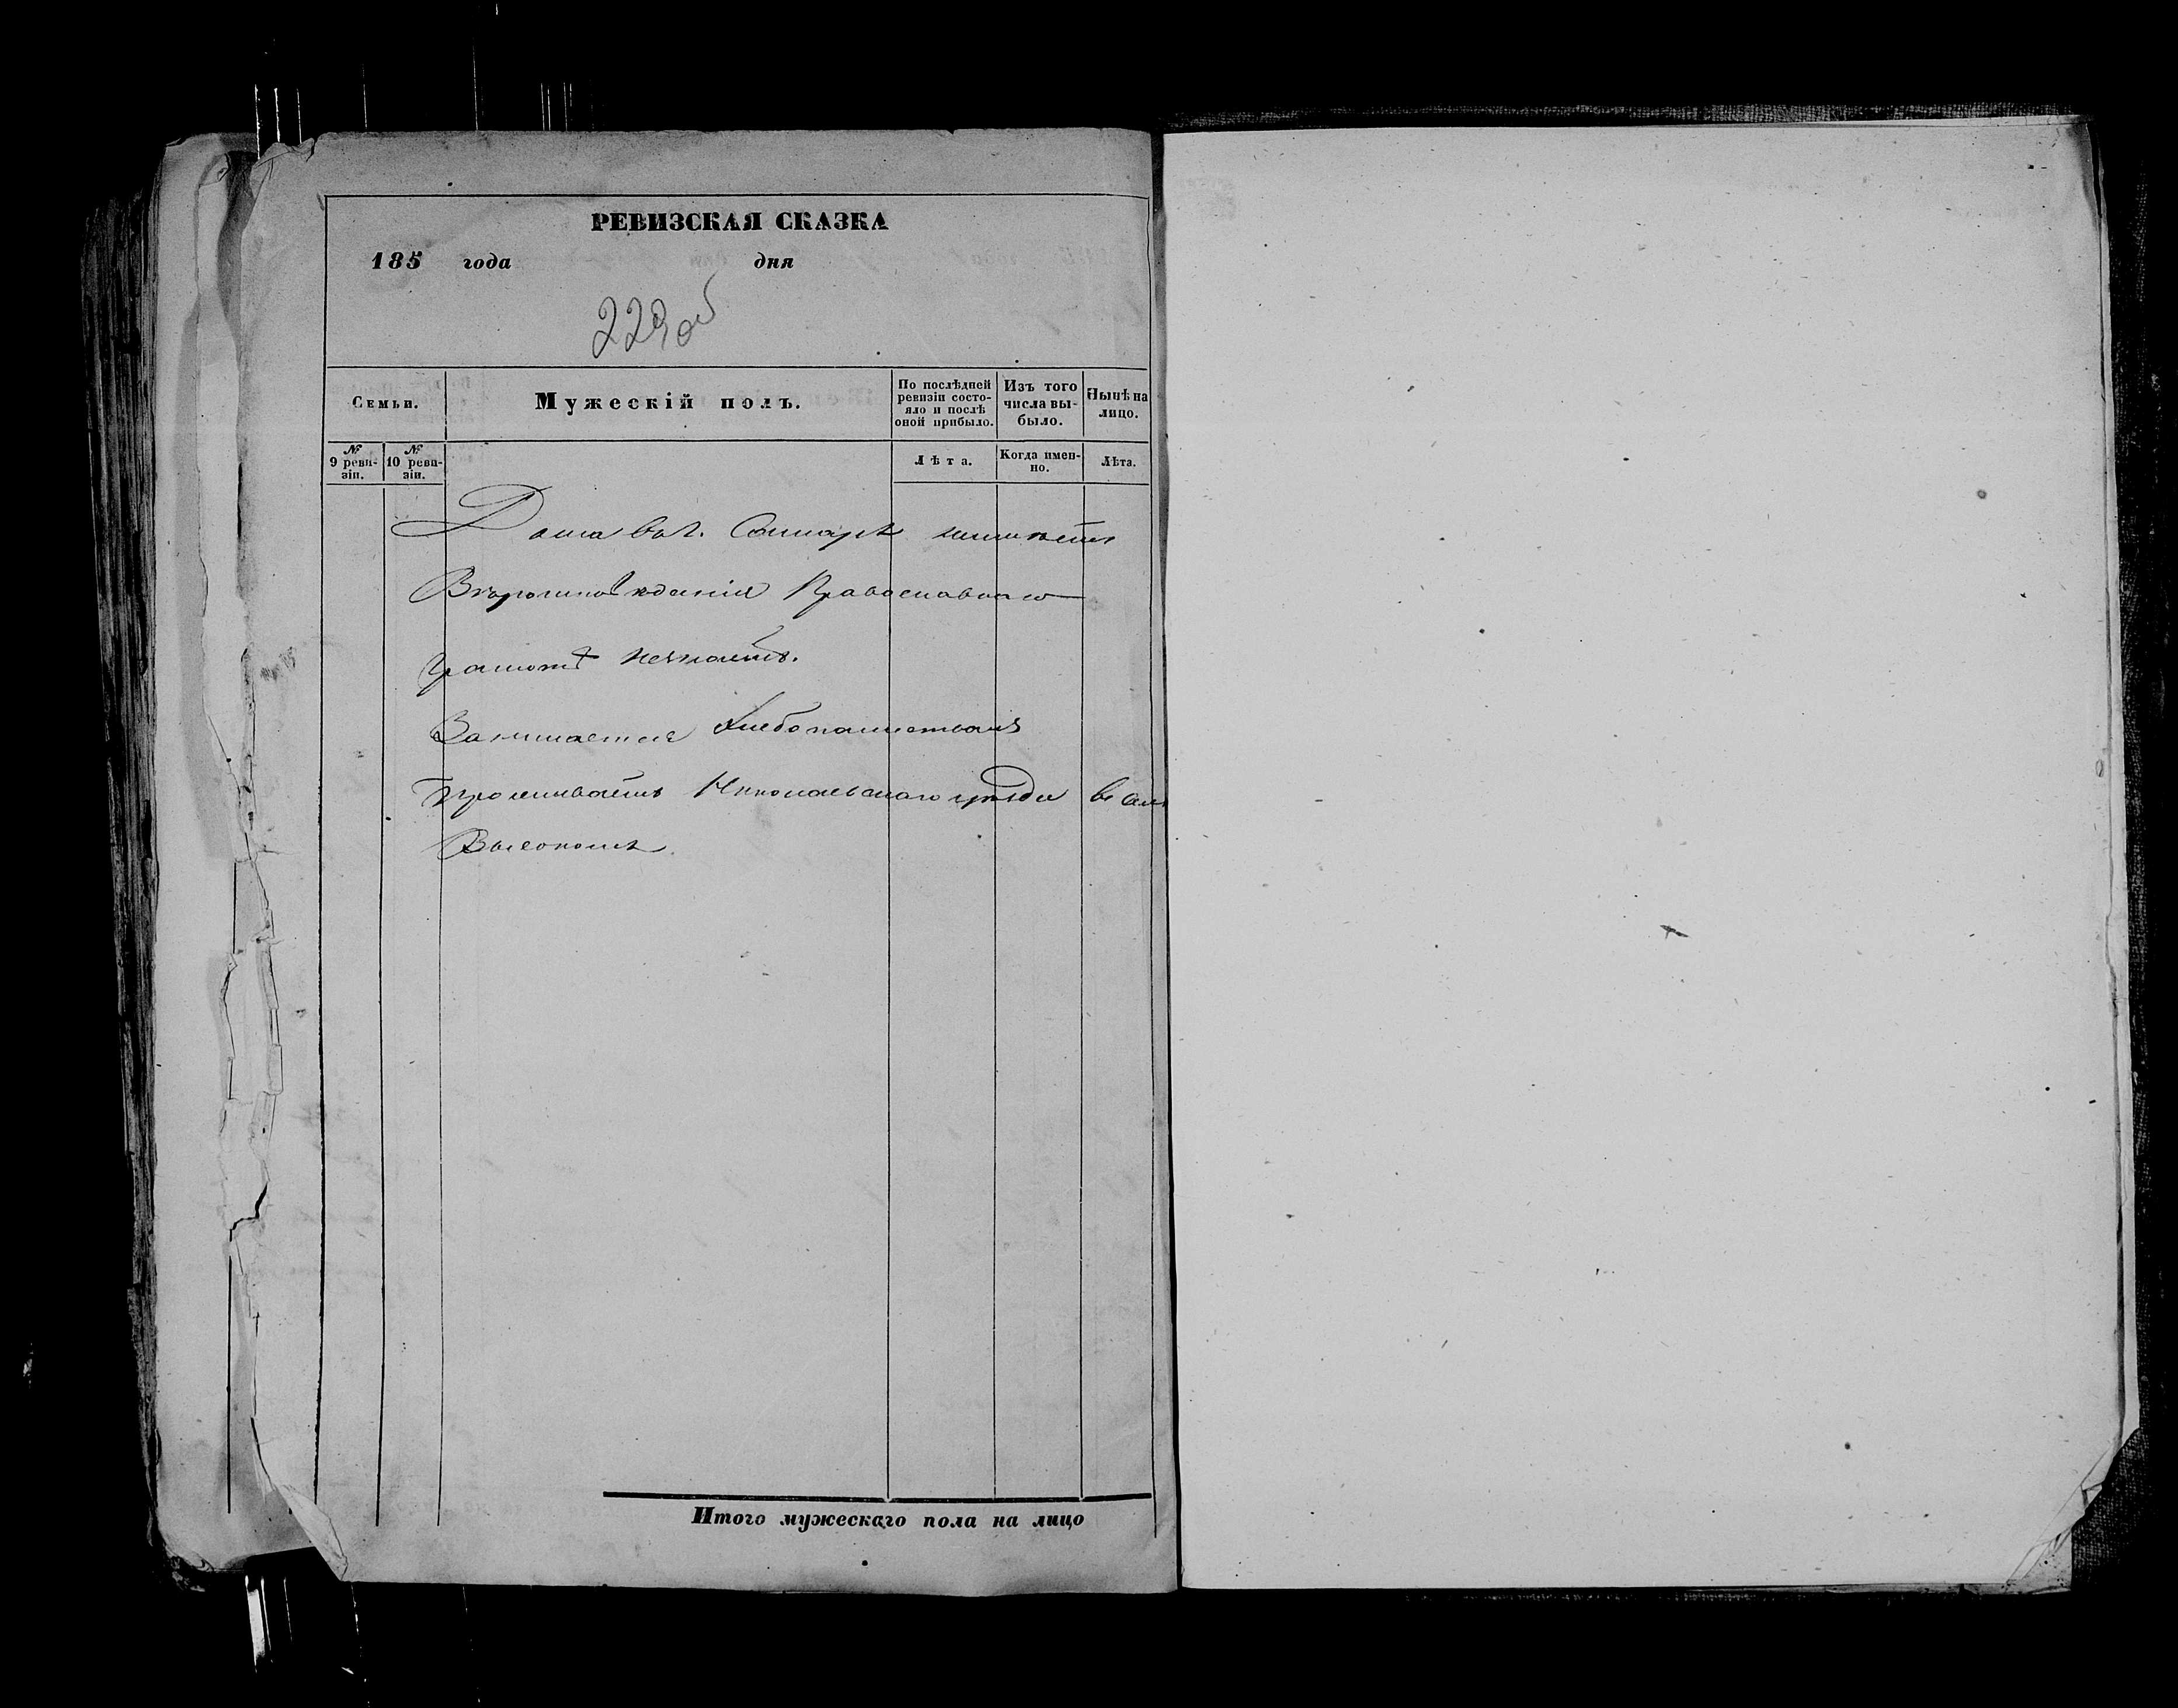 РЕВИЗСКАЯ СКАЗКА
185 года дня
229об
Семьи.
Мужескій полъ.
По послѣдней ревизіи состояло и послѣ оной прибыло.
Изъ того числа выбыло.
Нынѣ на лицо.
№ 9 ревизіи.
№ 10 ревизіи.
Лѣта.
Когда именно.
Лѣта.
Дома въ г. Самарѣ неимѣетъ
Вѣроисповѣданія Православнаго
грамотѣ незнаетъ.
Занимается Хлебопашествомъ
Проживаетъ Николаевскаго уѣзда въ селѣ
Высокомъ
Итого мужескаго пола на лицо